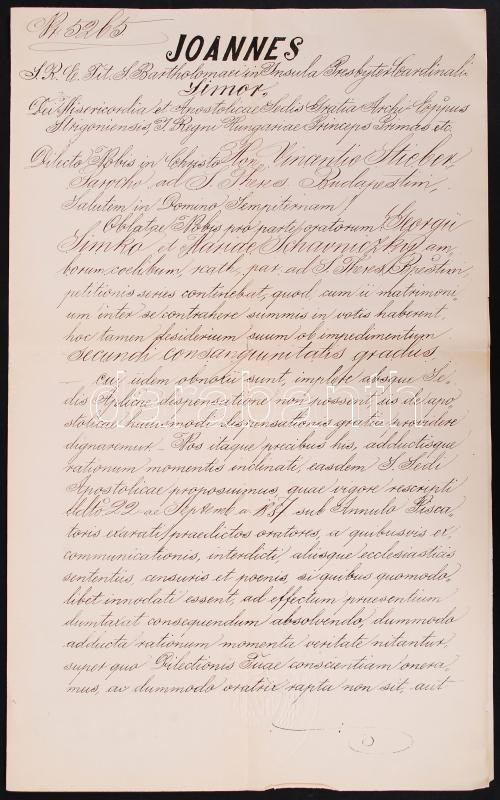 Nr. 5265
JOANNES
S. R. E. Tit. S. Bartholomaei in Insula Presbyter Cardinalis
Simor.
Dei Misericordia et Apostolicae Sedis Gratia Archi-Eppus
Strigoniensis, I. Regni Hungariae Princeps Primas etc.
Dilecto Nobis in Christo Hon. Vinantio Stieber
Parocho ad S. Theres. Budapestini.
Salutem in Domino Sempiternam!
Oblatae Nobis pro parte oratorum Georgii
Simko et Mariae am
borum coelibum, rcath. par. ad S. Theres. Bpestini
petitionis series continebat, quod, cum ii matrimoni
um inter se contrahere summis in votis haberent,
hoc tamen desiderium suum ob impedimentum
secundi consanguinitatis gradus
cui iidem obnoxii sunt, implere absque Se
dis Aplicae dispensatione non possent, iis de apo
stolicae huiusmodi dispensationis gratia providere
dignaremur. Nos itaque precibus his, adductisque
rationum momentis inclinati, easdem S. Sedi
Apostolicae proposuimus, quae vigore rescripti
ddto 22 ae Septemb. a. 1887 sub Annulo Pisca
toris exarati praedictos oratores, a quibusvis ex
communicationis, interdicti, aliisque ecclesiasticis
sententiis, censuris et poenis, si quibus quomodo
libet innodati essent, ad effectum praesentium
dumtaxat consequendum absolvendo, dummodo
adducta rationum momenta veritate nitantur,
super quo Dilectionis Tuae conscientiam onera
mus, ac dummodo oratrix rapta non sit, aut
darabanth